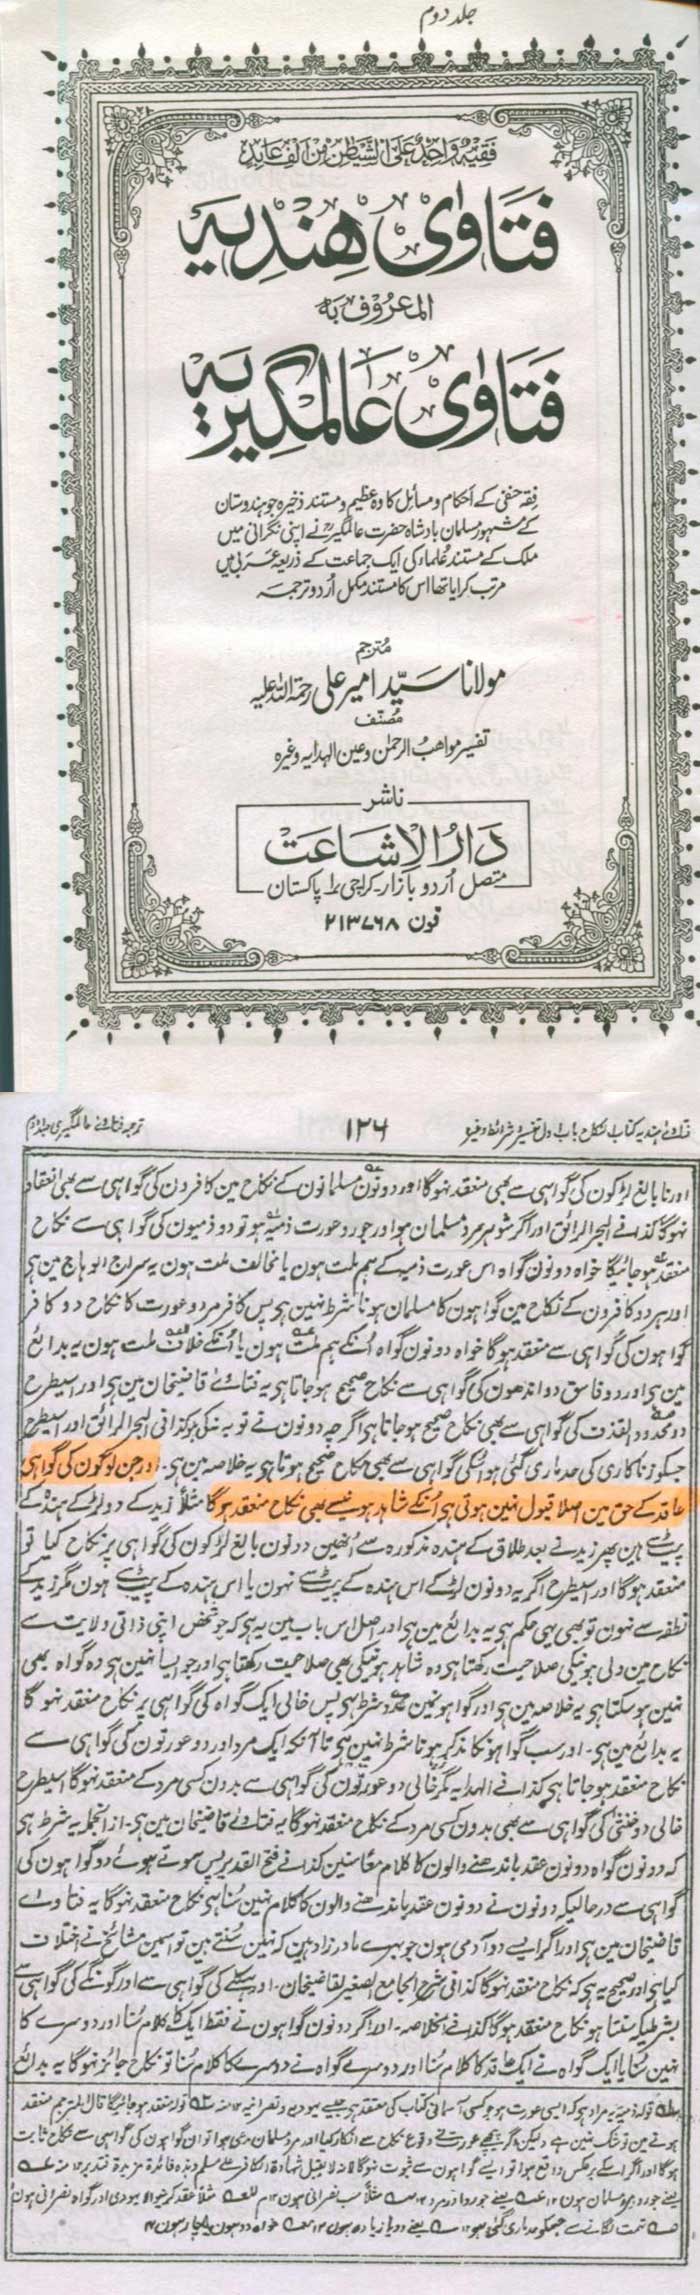 جلد دوم
فقیہ واحد علی الشیطن من الف عابد
فتاوی ہندیہ
المعروف بہ
فتاوی عالمگیریہ
فقہ حنفی کے احکام و مسائل کا وہ عظیم و مستند ذخیرہ جو ہندوستان
کے مشہور مسلمان بادشاہ حضرت عالمگیرؒ نے اپنی نگرانی میں
ملک کے مستند علماء کی ایک جماعت کے ذریعہ عربی میں
مرتب کرایا تھا اس کا مستند مکمل اُردو ترجمہ
مترجم
مولانا سید امیر علی رحمۃ اللہ علیہ
مصنف
تفسیر مواہب الرحمٰن و عین الہدایہ وغیرہ
ناشر
دار الاشاعت
متصل اُردو بازار۔ کراچی ۱ پاکستان
فون ۲۱۳۷۶۸
فتاوے ہندیہ کتاب النکاح باب اول تفسیر و شرائط وغیرہ ۱۲۶ ترجمہ فتاوے عالمگیری جلد دوم
اور نا بالغ لڑکون کی گواہی سے بھی منعقد نہوگا اور دونون مسلمانون کے نکاح مین کافرون کی گواہی سے بھی انعقاد
نہوگا کذا فے البحر الرائق اور اگر شوہر مرد مسلمان ہو اور جورو عورت ذمیہ ہو تو دو ذمیون کی گواہی سے نکاح
منعقد ہو جائیگا خواہ دونون گواہ اس عورت ذمیہ کے ہم ملت ہون یا مخالف ملت ہون یہ سراج الوہاج مین ہی
اور ہر دو کافرون کے نکاح مین گواہون کا مسلمان ہونا شرط نہین ہی پس کافر مرد و عورت کا نکاح دو کافر
گواہون کی گواہی سے منعقد ہوگا خواہ دونون گواہ اُنکے ہم ملت ہون یا اُنکے خلاف ملت ہون یہ بدائع
مین ہی اور دو فاسق دو اندھون کی گواہی سے نکاح صحیح ہو جاتا ہی یہ فتاوے قاضیخان مین ہی اور اسیطرح
دو محدود القذف کی گواہی سے بھی نکاح صحیح ہو جاتا ہی اگرچہ دونون نے توبہ نہ کی ہو کذا فی البحر الرائق اور اسیطرح
جسکو زناکاری کی حد ماری گئی ہو اُسکی گواہی سے بھی نکاح صحیح ہوتا ہی یہ خلاصہ مین ہی۔ اور جن لوگون کی گواہی
عاقد کے حق مین اصلا قبول نہین ہوتی ہی اُنکے شاہد ہونیسے بھی نکاح منعقد ہوگا مثلاً زید کے دو لڑکے ہندہ کے
پیٹ سے ہین پھر زید نے بعد طلاق کے ہندہ مذکورہ سے اُنھین دونون بالغ لڑکون کی گواہی پر نکاح کیا تو
منعقد ہوگا اور اسیطرح اگر یہ دونون لڑکے اس ہندہ کے پیٹ سے نہون یا اس ہندہ کے پیٹ سے ہون مگر زید کے
نطفہ سے نہون تو بھی یہی حکم ہی یہ بدائع مین ہی اور اصل اس باب مین یہ ہی کہ جو شخص اپنی ذاتی ولایت سے
نکاح مین ولی ہونیکی صلاحیت رکھتا ہی وہ شاہد ہونیکی بھی صلاحیت رکھتا ہی اور جو ایسا نہین ہی وہ گواہ بھی
نہین ہو سکتا ہی یہ خلاصہ مین ہی اور گواہونمین عدد شرط ہی پس خالی ایک گواہ کی گواہی پر نکاح منعقد نہو گا
یہ بدائع مین ہی۔ اور سب گواہونکا مذکر ہونا شرط نہین ہی تا آنکہ ایک مرد اور دو عورتون کی گواہی سے
نکاح منعقد ہو جاتا ہی کذا فے الہدایہ مگر خالی دو عورتون کی گواہی سے بدون کسی مرد کے منعقد نہوگا اسیطرح
خالی دو خنثی کی گواہی سے بھی بدون کسی مرد کے نکاح منعقد نہوگا یہ فتاوے قاضیخان مین ہی۔ از انجملہ یہ شرط ہی
کہ دونون گواہ دونون عقد باندھنے والون کا کلام معاً سنین کذا فے فتح القدیر پس سوتے ہوئے دو گواہون کی
گواہی سے در حالیکہ دونون نے دونون عقد باندھنے والون کا کلام نہین سُنا ہی نکاح منعقد نہوگا یہ فتاوے
قاضیخان مین ہی اور اگر ایسے دو آدمی ہون جو بہرے مادرزاد ہین کہ نہین سُنتے ہین تو اسمین مشائخ نے اختلاف
کیا ہی اور صحیح یہ ہی کہ نکاح منعقد نہوگا کذا فی شرح الجامع الصغیر لقاضیخان۔ اور ہکلے کی گواہی سے اور گونگے کی گواہی سے
بشرطیکہ سنتا ہو نکاح منعقد ہوگا کذا فے الخلاصہ۔ اور اگر دونون گواہون نے فقط ایک کا کلام سُنا اور دوسرے کا
نہین سُنا یا ایک گواہ نے ایک عاقد کا کلام سُنا اور دوسرے گواہ نے دوسرے کا کلام سُنا تو نکاح جائز نہوگا یہ بدائع
قولہ ذمیہ یہ مراد ہی کہ ایسی عورت ہو جو کسی آسمانی کتاب کی معتقد ہی جیسے یہودیہ و نصرانیہ ۱۲ منہ قولہ منعقد ہو جائیگا قال المترجم منعقد
ہونے مین تو شک نہین ہے دلیکن اگر پیچھے عورت نے وقوع نکاح سے انکار کیا اور مرد مسلمان مدعی ہوا تو ان گواہون کی گواہی سے نکاح ثابت
ہوگا اور اگر اسکے برعکس واقع ہوا تو ایسے گواہون سے ثبوت نہوگا
یعنے جورو مرد مسلمان ہون ۱۲ یعنے جورو اور مرد ۱۲ مثلاً سب نصرانی ہون ۱۲ مثلاً عقد کرنیوالا یہودی اور گواہ نصرانی ہون
تہمت لگانے سے جسکو حد ماری گئی ہو ۱۲ یعنے دو یا زیادہ ہون ۱۲ خواہ دو ہون یا چار ہون